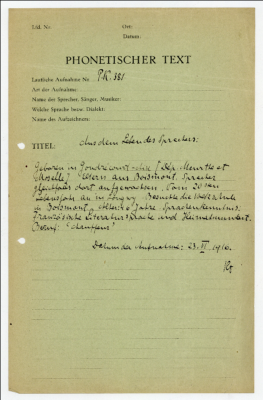 Lfd. Nr.
Ort:
Datum:
PHONETISCHER TEXT
Lautliche Aufnahme Nr. PK 381
Art der Aufnahme:
Name der Sprecher, Sänger, Musiker:
Welche Sprache bezw. Dialekt:
Name des Aufzeichners:
TITEL: Aus dem Leben des Sprechers:
Geboren in (Dép. Meurthe et
Moselle) Eltern aus Boismont. Sprecher
gleichfalls dort aufgewachsen. Vom 20sten
Lebensjahr an in Longwy. Besuchte die
in Boismont. Jahre. Sprachkenntnis:
Französische Literatursprache und Heimatmundart.
Beruf: Chauffeur
Datum der Aufnahme: 23. VI 1916.